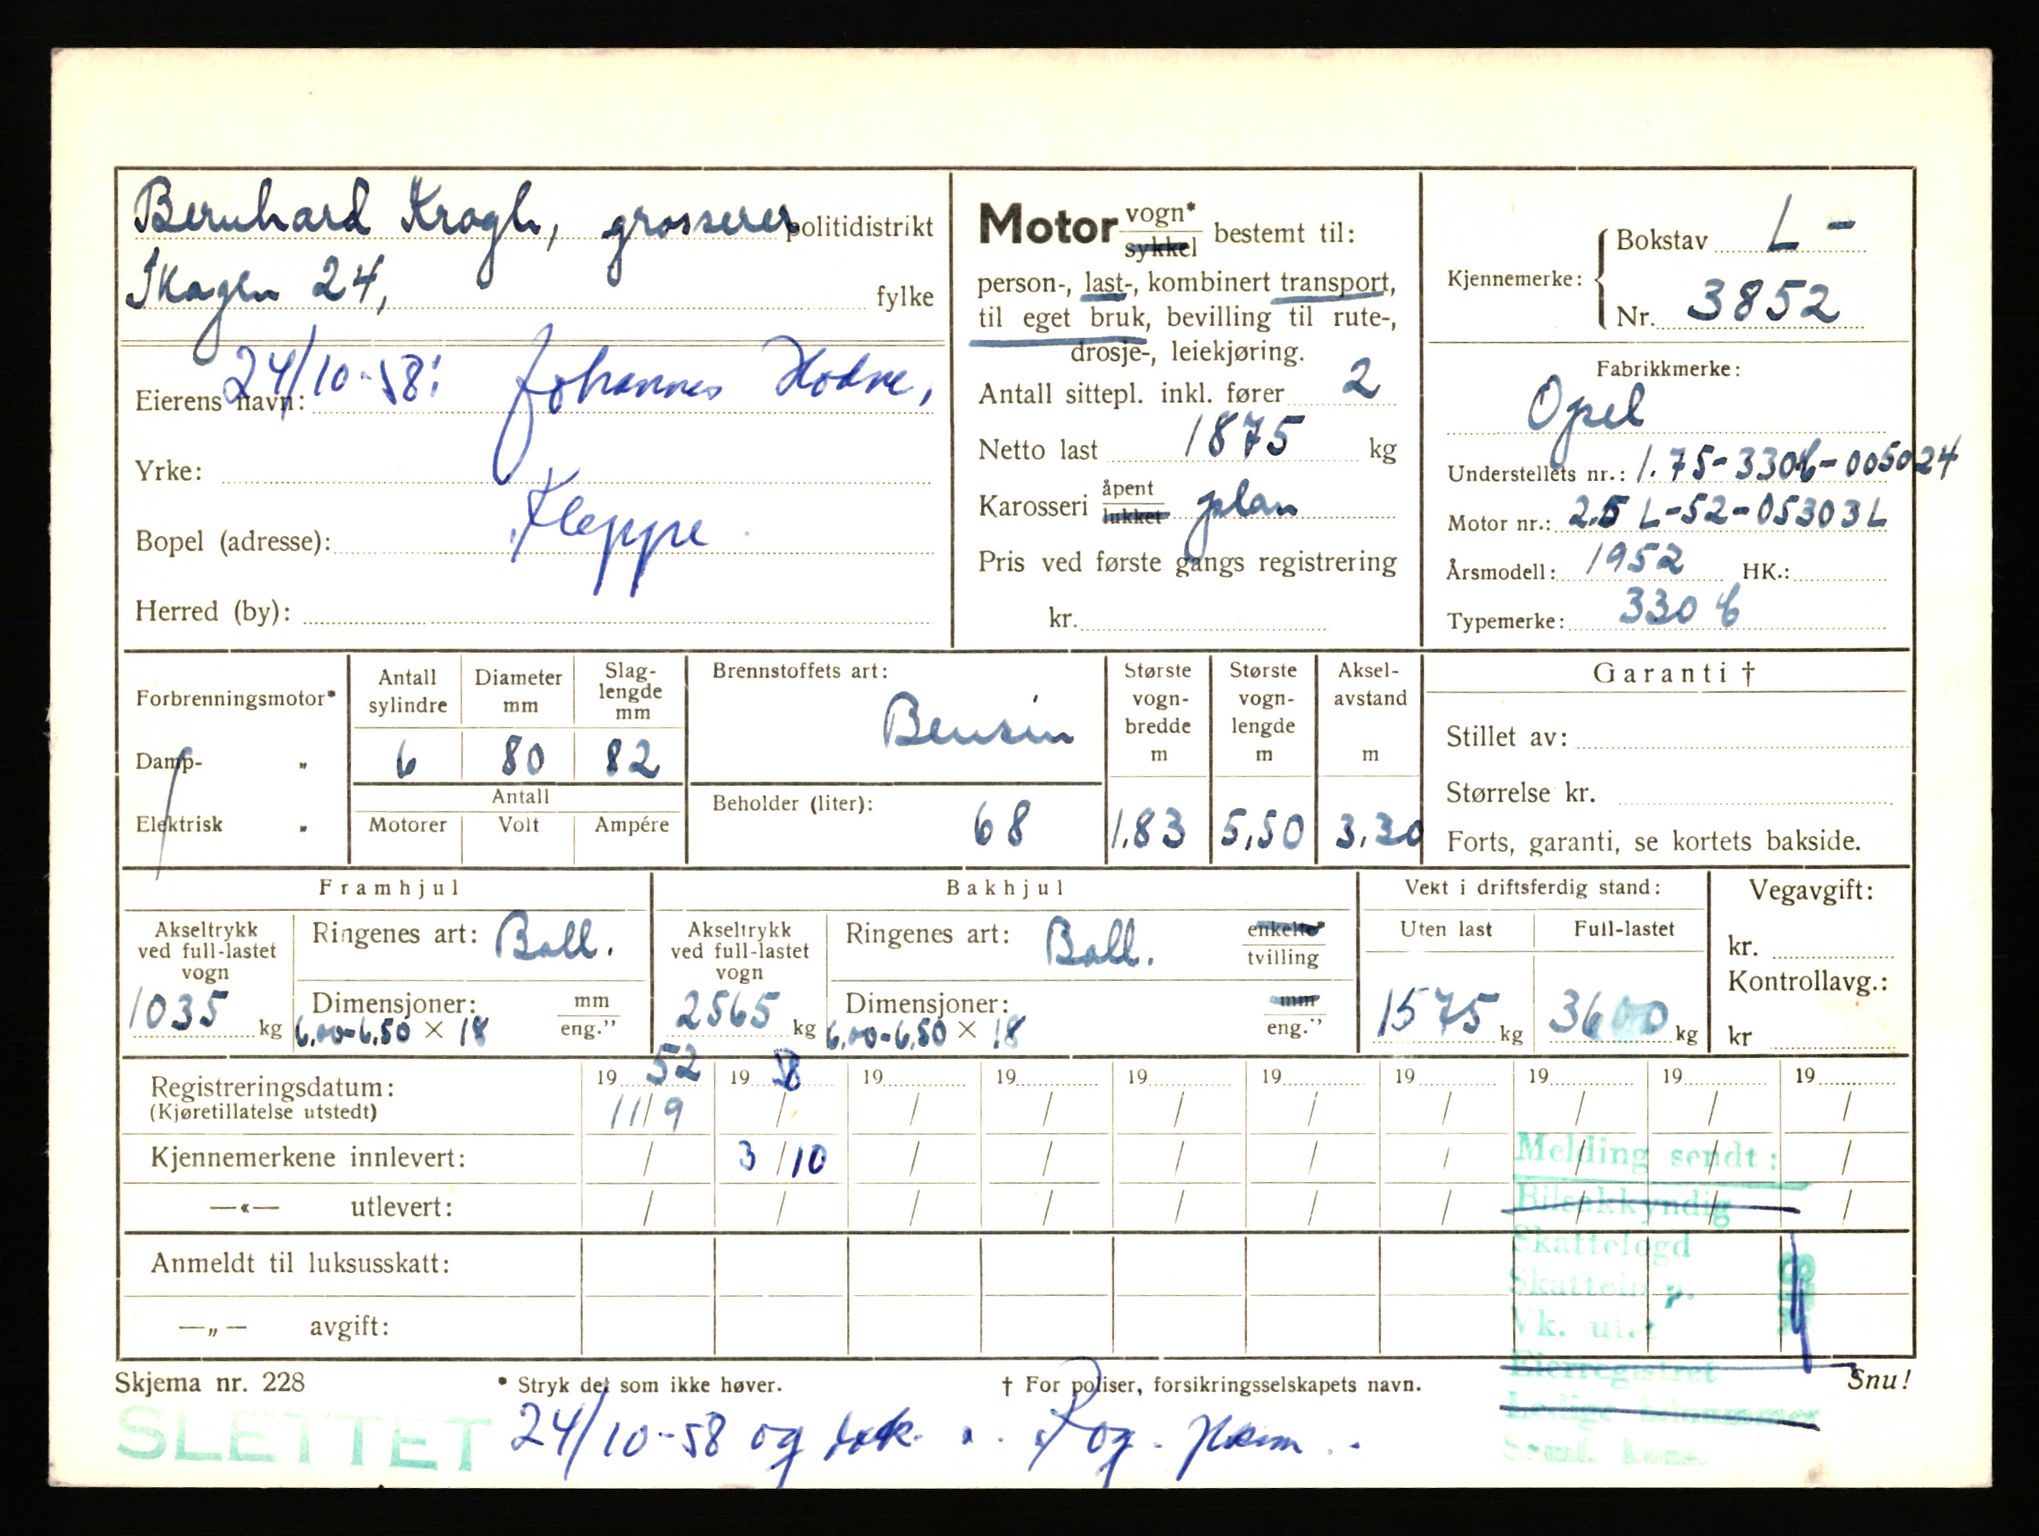 Bernhard Krogh, grosserer politidistrikt
Skagen 24, fylke
24/10-58: Johannes Hodne,
Eierens navn:
Yrke:
Kleppe
Bopel (adresse):
Herred (by):
Motor vogn* sykkel bestemt til:
person-, last-, kombinert transport,
til eget bruk, bevilling til rute-,
drosje-, leiekjøring.
Antall sittepl. inkl. fører 2
Netto last 1875 kg
Karosseri åpent lukket plan
Pris ved første gangs registrering
kr.
Kjennemerke: Bokstav L-
Nr. 3852
Fabrikkmerke:
Opel
Understellets nr.: 1.75-330b-005024
Motor nr.: 2.5 L-52-05303L
Årsmodell: 1952 HK.:
Typemerke: 330 b
Forbrenningsmotor*
Damp- „
Elektrisk „
Antall sylindre
6
Diameter mm
80
Slag-lengde mm
82
Antall
Motorer Volt Ampére
Brennstoffets art:
Bensin
Beholder (liter):
68
Største vogn-bredde m
1.83
Største vogn-lengde m
5,50
Aksel-avstand m
3.30
Garanti †
Stillet av:
Størrelse kr.
Forts, garanti, se kortets bakside.
Framhjul
Akseltrykk ved full-lastet vogn
1035 kg
Ringenes art: Ball.
Dimensjoner: mm
6,00-6,50 × 18 eng."
Bakhjul
Akseltrykk ved full-lastet vogn
2565 kg
Ringenes art: Ball. enkelte* tvilling
Dimensjoner: mm
6,00-6,50 × 18 eng."
Vekt i driftsferdig stand:
Uten last Full-lastet
1575 kg 3600 kg
Vegavgift:
kr.
Kontrollavg.:
kr
Registreringsdatum: 19 52 19 58 19 19 19 19 19 19 19 19
(Kjøretillatelse utstedt) 11/9 / / / / / / / / /
Kjennemerkene innlevert: / 3/10 / / / / / / / /
—«— utlevert: / / / / / / / / / /
Anmeldt til luksusskatt:
—„— avgift:
Melding sendt:
Bilsakkyndig
Skattefogd
Vk. utst
Eierregistret
Skjema nr. 228 * Stryk det som ikke høver. † For poliser, forsikringsselskapets navn. Snu!
SLETTET 24/10-58 og